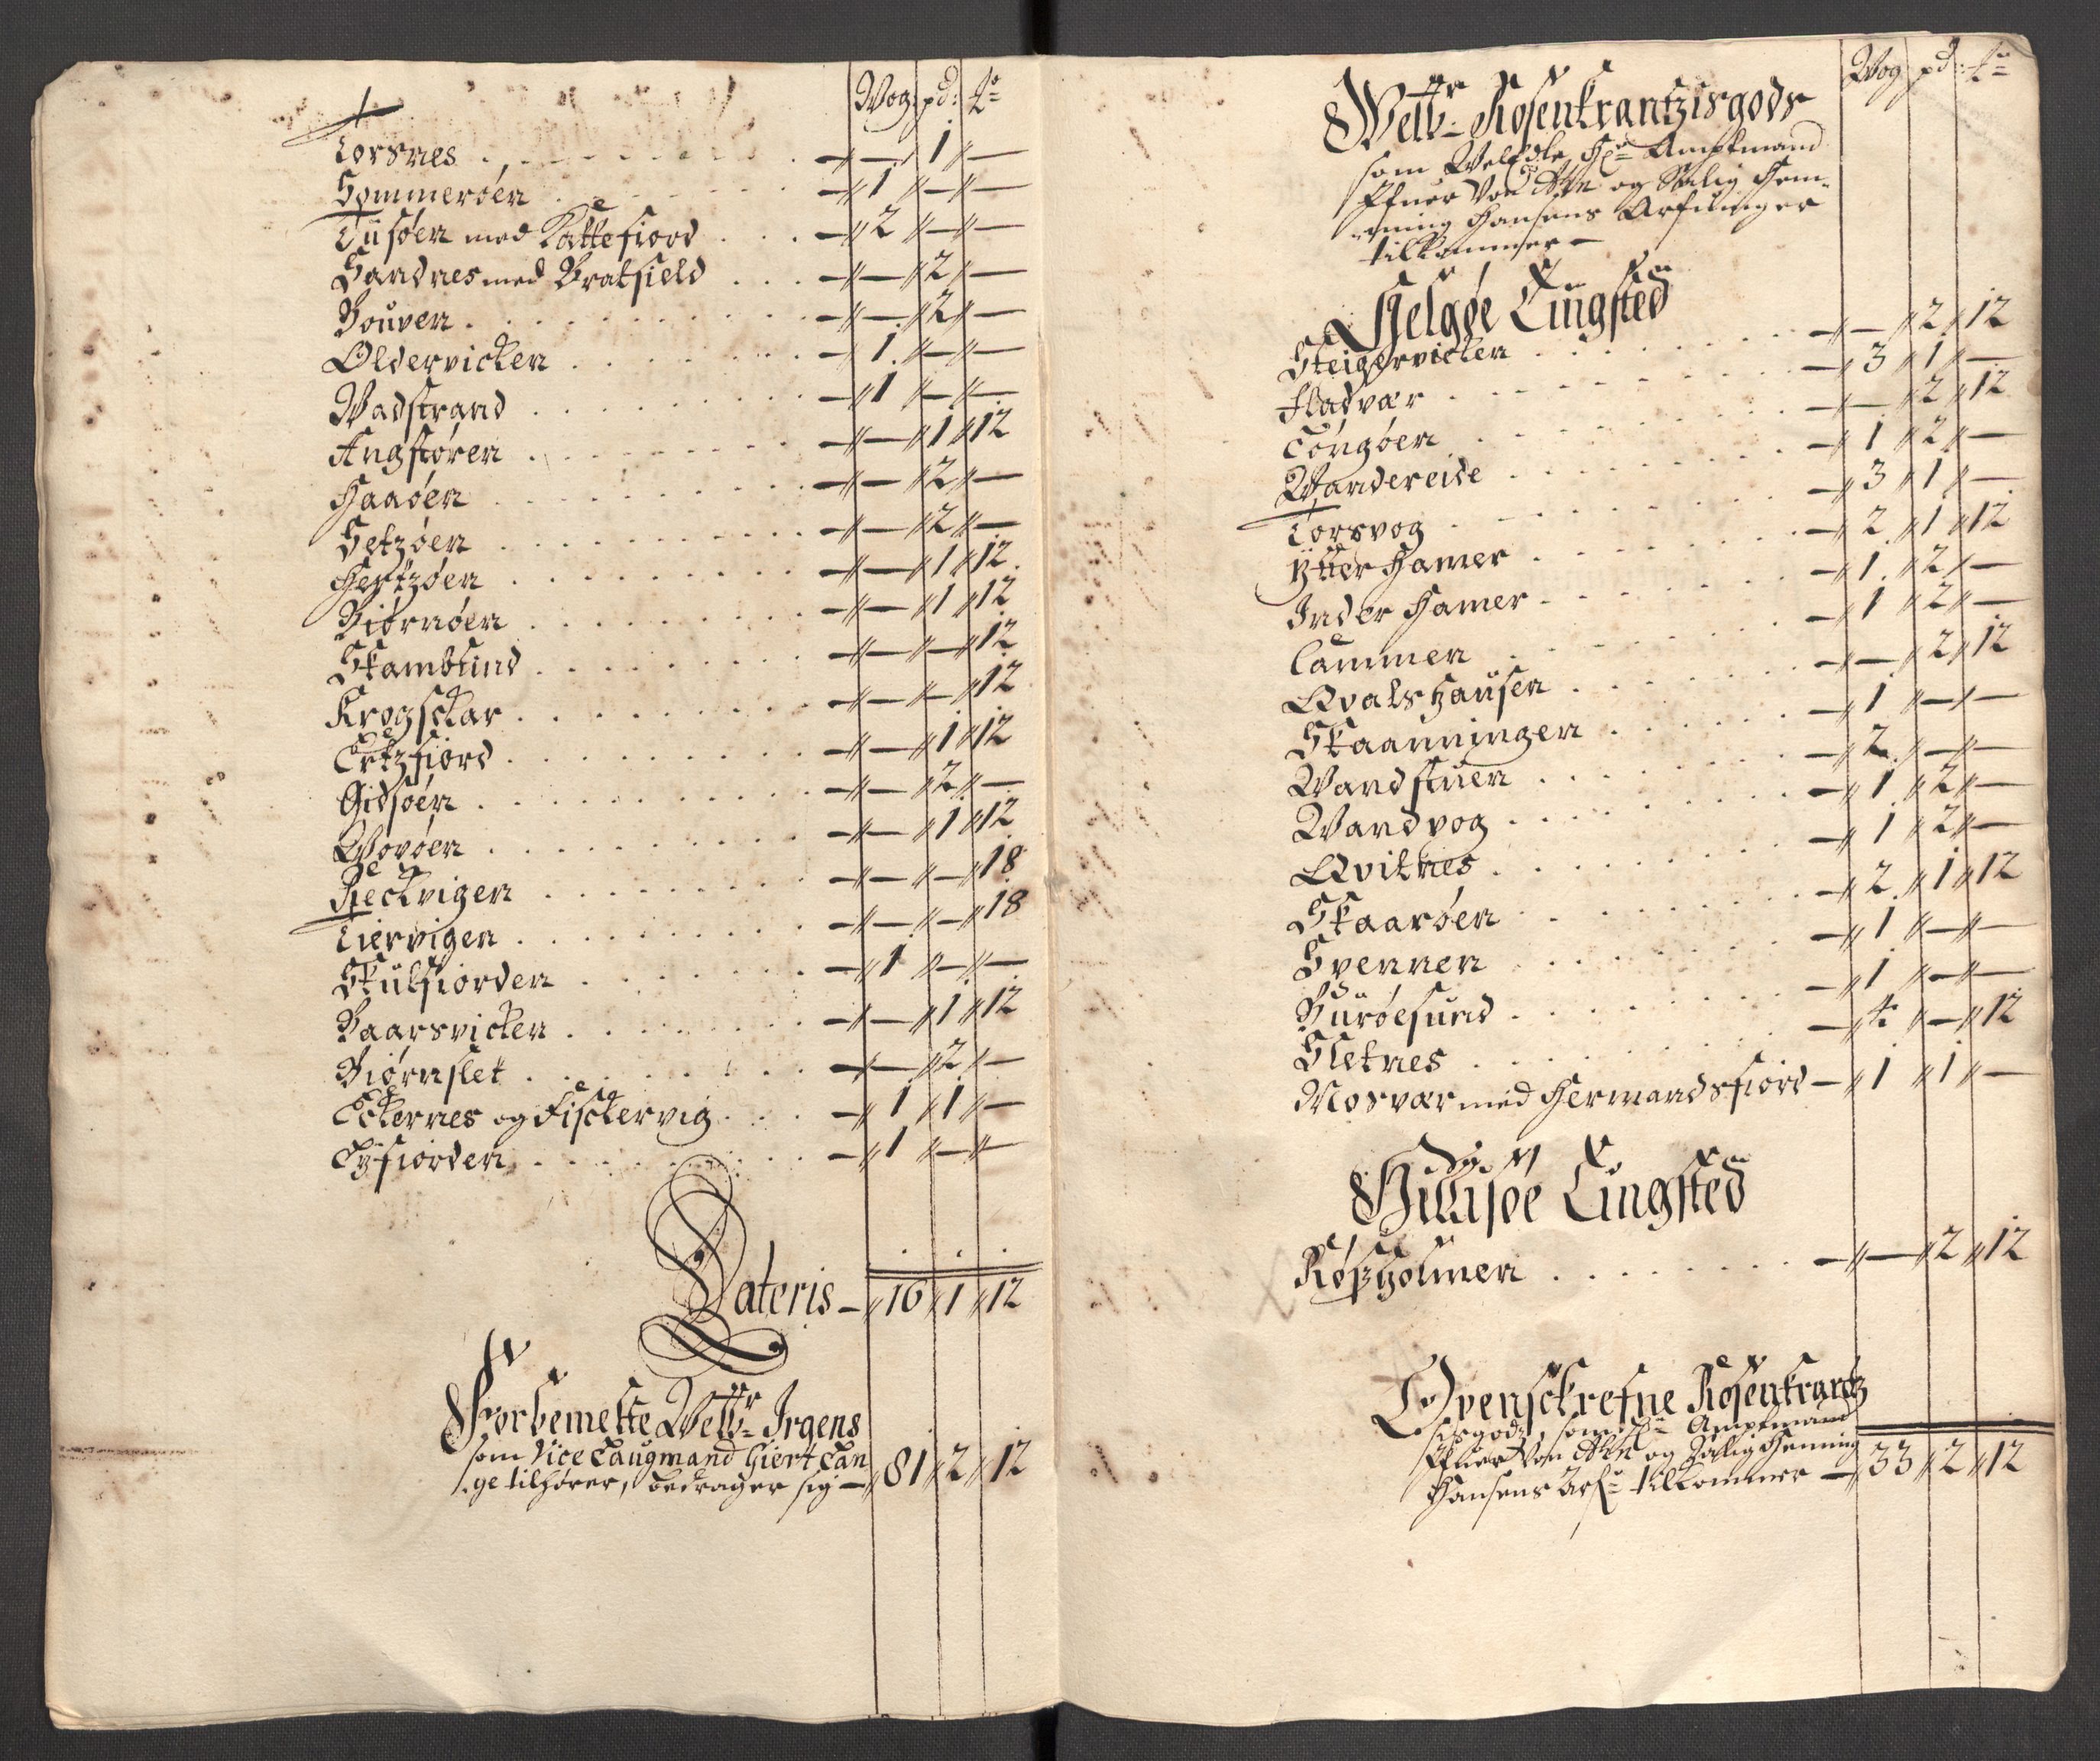 Wog: pd: ℔
Torsnes . . . . . . — 〃 — 〃 1 〃 —
Sommerøen . . . . . — 〃 1 〃 — 〃 —
Tusøen med Kattefiord . . . — 〃 2 〃 — 〃 —
Sandnes med Bratfield . . . — 〃 — 〃 2 〃 —
Bouven . . . . . . — 〃 — 〃 2 〃 —
Oldervicken . . . . . — 〃 1 〃 — 〃 —
Wadstrand . . . . . — 〃 1 〃 — 〃 —
Angstøren . . . . . — 〃 — 〃 1 〃 12
Haaøen . . . . . . — 〃 — 〃 2 〃 —
Setzøen . . . . . . — 〃 — 〃 2 〃 —
Hertzøen . . . . . . — 〃 — 〃 1 〃 12
Biørnøen . . . . . . — 〃 — 〃 1 〃 12
Skambsund . . . . . — 〃 — 〃 — 〃 12
Krogsckar . . . . . — 〃 — 〃 — 〃 12
Ertzfiord . . . . . — 〃 — 〃 1 〃 12
Gidsøen . . . . . . — 〃 — 〃 2 〃 —
Wovøen . . . . . . — 〃 — 〃 1 〃 12
Reckvigen . . . . . — 〃 — 〃 — 〃 18
Tiervigen . . . . . — 〃 — 〃 — 〃 18
Skulfiorden . . . . . — 〃 1 〃 — 〃 —
Baarsvicken . . . . . — 〃 — 〃 1 〃 12
Biørnslet . . . . . — 〃 — 〃 2 〃 —
Eckernes og Fisckervig . . . — 〃 1 〃 1 〃 —
Eyfiorden . . . . . — 〃 1 〃 — 〃 —
Lateris — 〃 16 〃 1 〃 12
Forbemelte Velbr Irgens
som Vice Laugmand Giert Lan
ge tilhører, bedrager sig — 〃 81 〃 2 〃 12
Wog pd: ℔
Welbr Rosenkrantzisgods
som WelEdle Hr Amptmand
von og Salig Hen-
ning Hansens Arfvinger
tilkommer —
Helgøe Tingsted
Steigervicken . . . . — 〃 — 〃 2 〃 12
Fladvær . . . . . . — 〃 3 〃 1 〃 —
Løngøen . . . . . . — 〃 — 〃 2 〃 12
Wandereide . . . . . — 〃 1 〃 2 〃 —
Torsvog . . . . . . — 〃 3 〃 1 〃 —
Ytter Hamer . . . . . — 〃 2 〃 1 〃 12
Inder Hamer . . . . . — 〃 1 〃 2 〃 —
Lammen . . . . . . — 〃 1 〃 2 〃 —
Qvalshausen . . . . . — 〃 — 〃 2 〃 12
Skaanningen . . . . . — 〃 1 〃 — 〃 —
Wandstuen . . . . . — 〃 2 〃 — 〃 —
Wandvog . . . . . . — 〃 1 〃 2 〃 —
Qvitnes . . . . . . — 〃 1 〃 2 〃 —
Skaarøen . . . . . — 〃 2 〃 1 〃 12
Svennen . . . . . . — 〃 1 〃 — 〃 —
Burøesund . . . . . — 〃 1 〃 — 〃 —
Sletnes . . . . . . — 〃 4 〃 — 〃 12
Mosvær med Hermandsfiord — 〃 1 〃 1 〃 —
Hillisøe Tingsted
Røszholmen . . . . . — 〃 — 〃 2 〃 12
Ovensckrefne Rosenkrantz
isgodz, som Hr Amptmand
von og Salig Henning
Hansens Arf: tilkommer — 〃 33 〃 2 〃 12